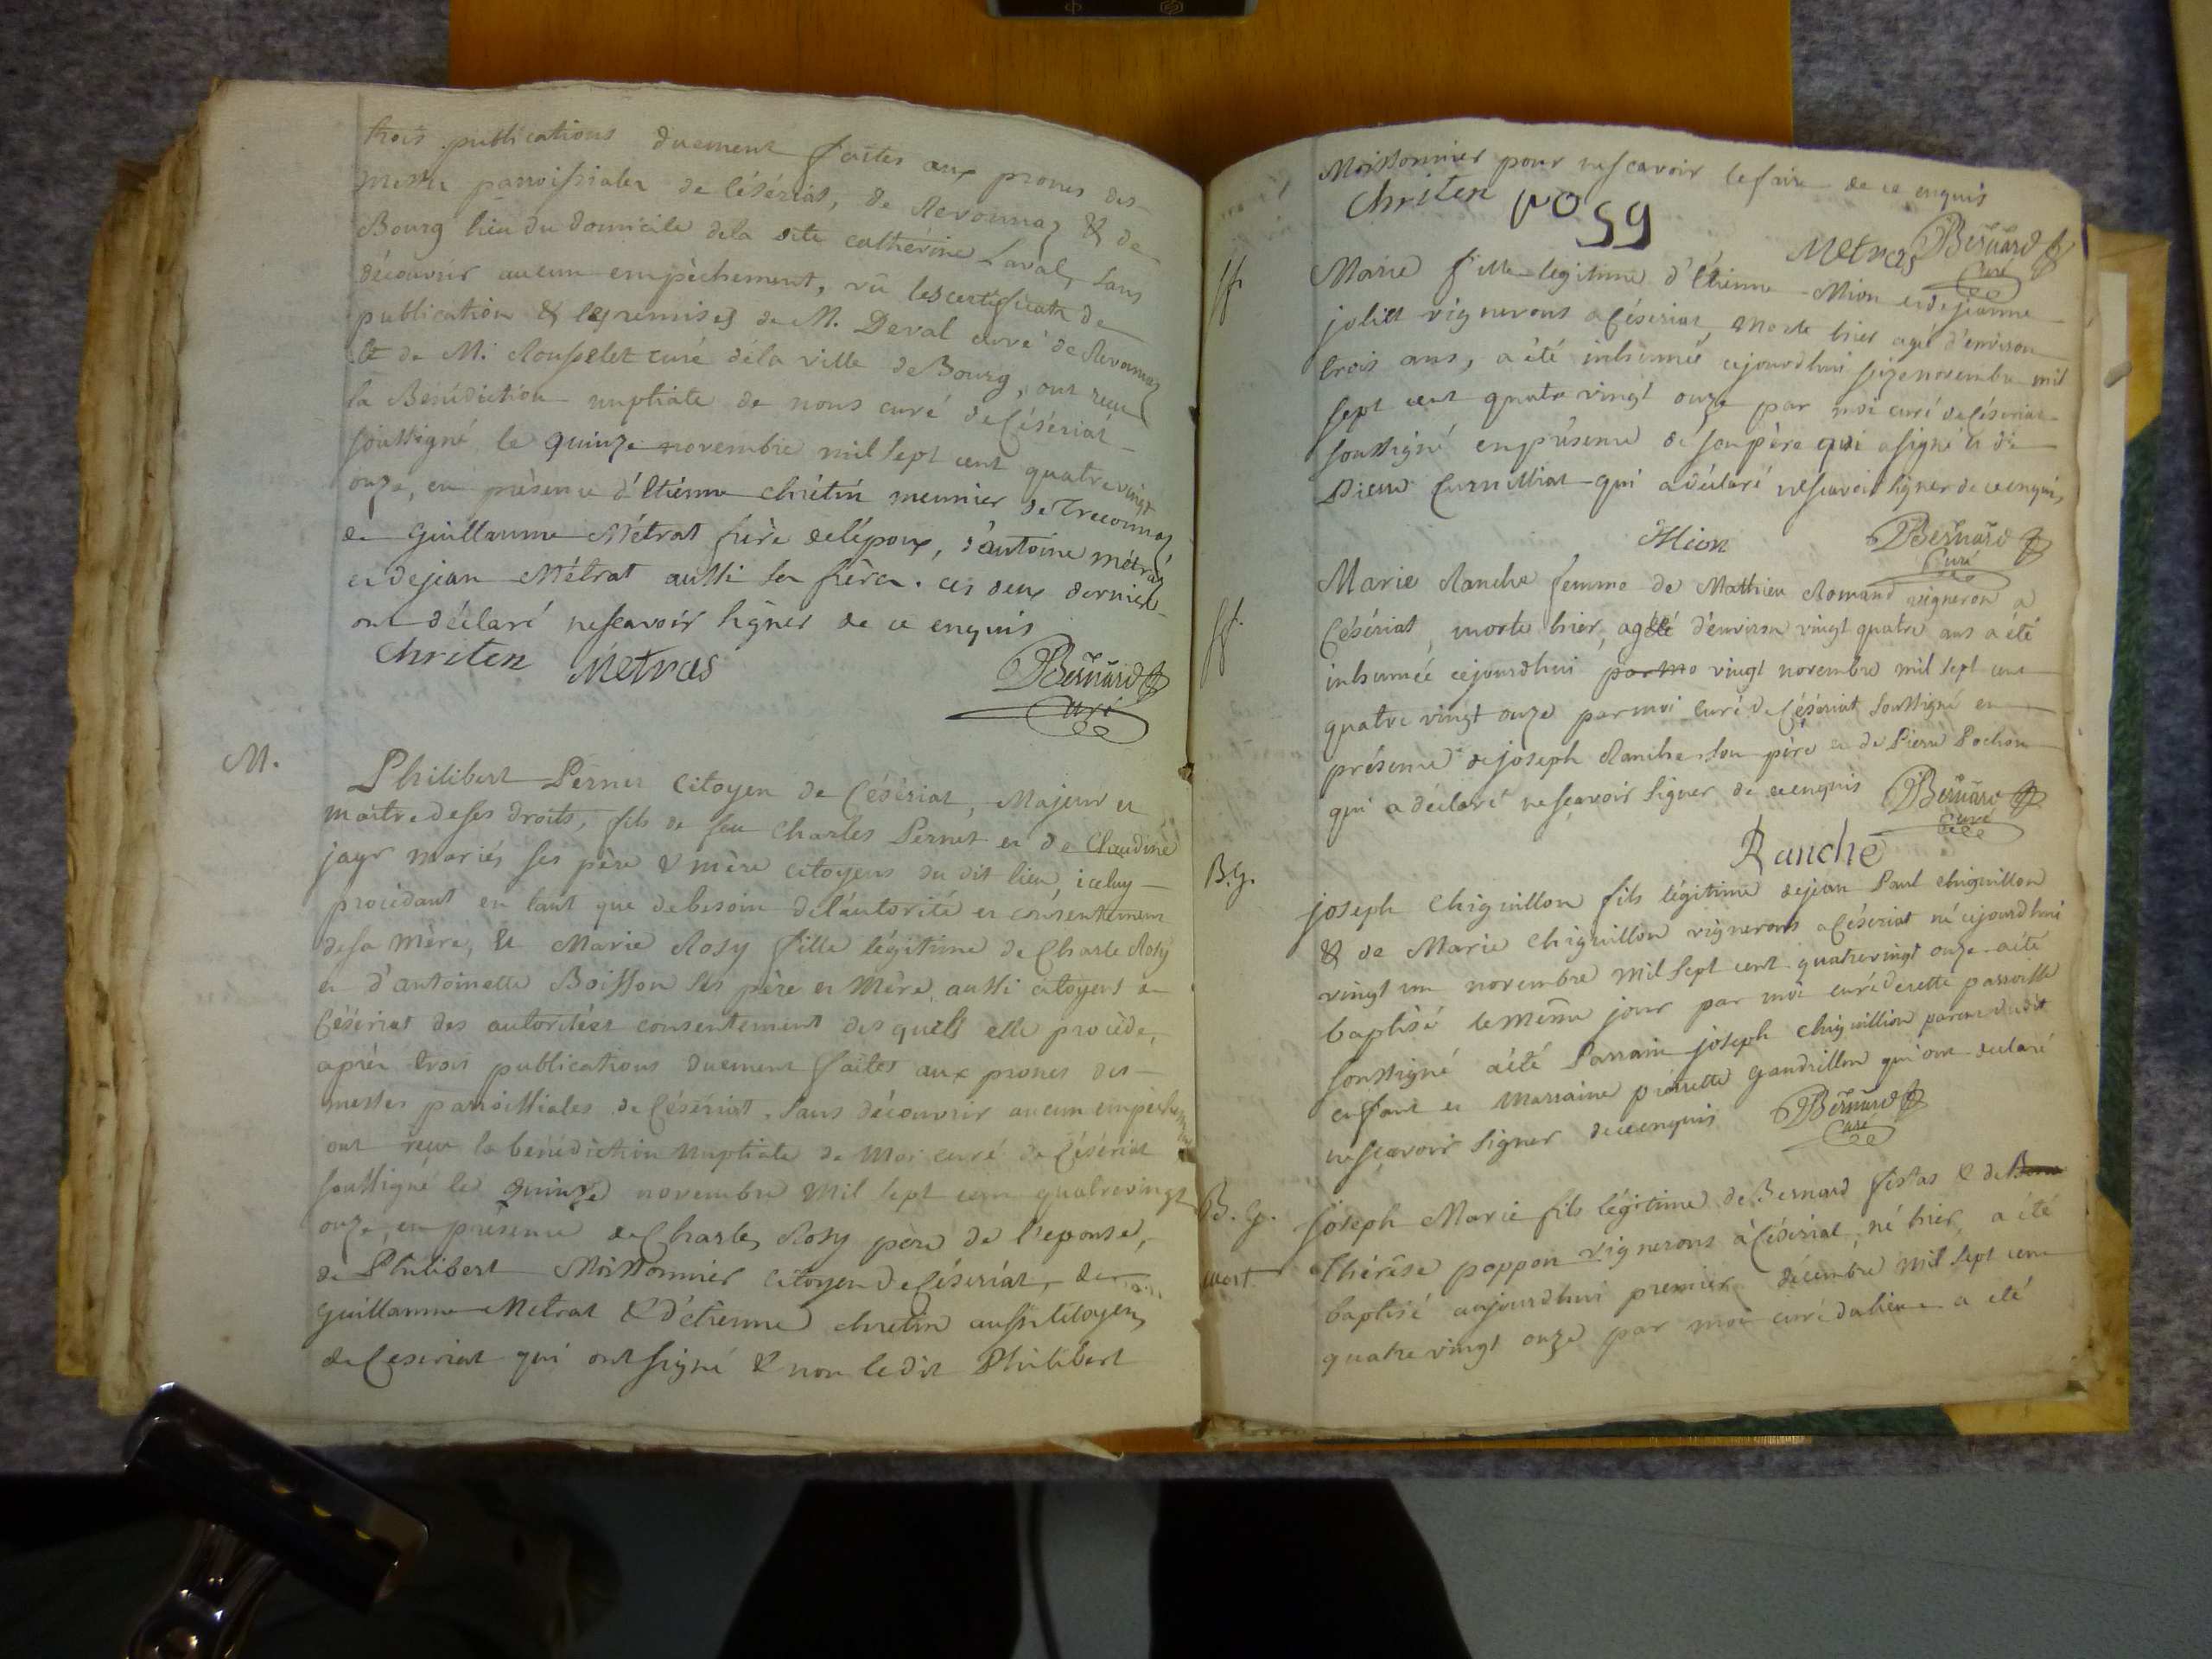 trois publications duement faites aux prones des
messes parroissiales de Césériat, de Revonnaz & de
Bourg lieu du domicile dela dite catherine Laval, sans
découvrir aucun empêchement, vû les certificats de
publication & les remises de M. Deval curé de Revonnaz
et de M. Rousselet curé dela ville de Bourg, ont reçu
la Bénédiction nuptiale de nous curé de Céseriat
soussigné le quinze novembre mil sept cent quatre vingt
onze, en présence d'Etienne chrétin meunier de Treconnaz,
de Guillaume Métrat frère de l'époux, d'antoine métrat
et de jean Métrat aussi son frère. ces deux derniers
ont déclaré ne scavoir signer de ce enquis
Chriten Metras Bernard
Curé
M.
Philibert Pernet Citoyen de Césériat, Majeur et
maitre de ses droits, fils de feu Charles Pernet et de Claudine
jayr mariés ses père & mère citoyens du dit lieu, iceluy
procédant en tant que de besoin de l'autorité et consentement
de sa mère, Et Marie Rosy fille légitime de Charle Rosy
et d'antoinette Boisson ses père et Mère aussi citoyens de
Céseriat des autorité et consentement des quels elle procède,
après trois publications duement faites aux prones des
messes parroissiales de Céseriat, sans découvrir aucun empechement
ont reçu la bénédiction nuptiale de Moi curé de Céseriat
soussigné le quinze novembre mil sept cent quatrevingt
onze, en présence de Charles Rosy père de l'epouse,
de Philibert Moissonnier citoyen de Céseriat, de
Guillaume Metrat & d'étienne chretin aussi citoyens
de Ceseriat qui ont signé & non le dit Philibert
Moissonnier pour ne scavoir le faire de ce enquis
Chriten Metras Bernard
Curé
ff.
Marie fille légitime d'Etienne Mion et de jeanne
joliet vignerons a Céseriat, morte hier agée d'environ
trois ans, a été inhumée cejourdhui seize novembre mil
sept cent quatre vingt onze par moi curé de Céseriat
soussigné en présence de son père qui a signé & de
Pierre Curnilliat qui a déclaré ne scavoir signer de ce enquis,
Mion Bernard
Curé
ff.
Marie Ranche femme de Mathieu Romand vigneron a
Céseriat, morte hier, agéé d'environ vingt quatre ans a été
inhumée cejourdhui par mo vingt novembre mil sept cent
quatre vingt onze par moi curé de Céseriat soussigné en
présence de joseph Ranche son père et de Pierre Pochon
qui a déclaré ne sçavoir signer de ce enquis Bernard
Curé
Ranche
B.g.
joseph Chiguillon fils légitime de jean Paul chiguillon
& de Marie Chiguillon vignerons a Céseriat né cejourdhui
vingt un novembre mil sept cent quatrevingt onze a été
baptisé le même jour par moi curé de cette parroisse
soussigné a été Parrain joseph Chiguillion parent du dit
enfant et Marraine pierrette Gandrillon qui ont declaré
ne sçavoir signer de ce enquis Bernard
Curé
B. g.
mort
joseph Marie fils légitime de Bernard fistas & de
Thérèse poppon vignerons à Céseriat, né hier, a été
baptisé aujourdhui premier décembre mil sept cent
quatre vingt onze par moi curé du lieu a été